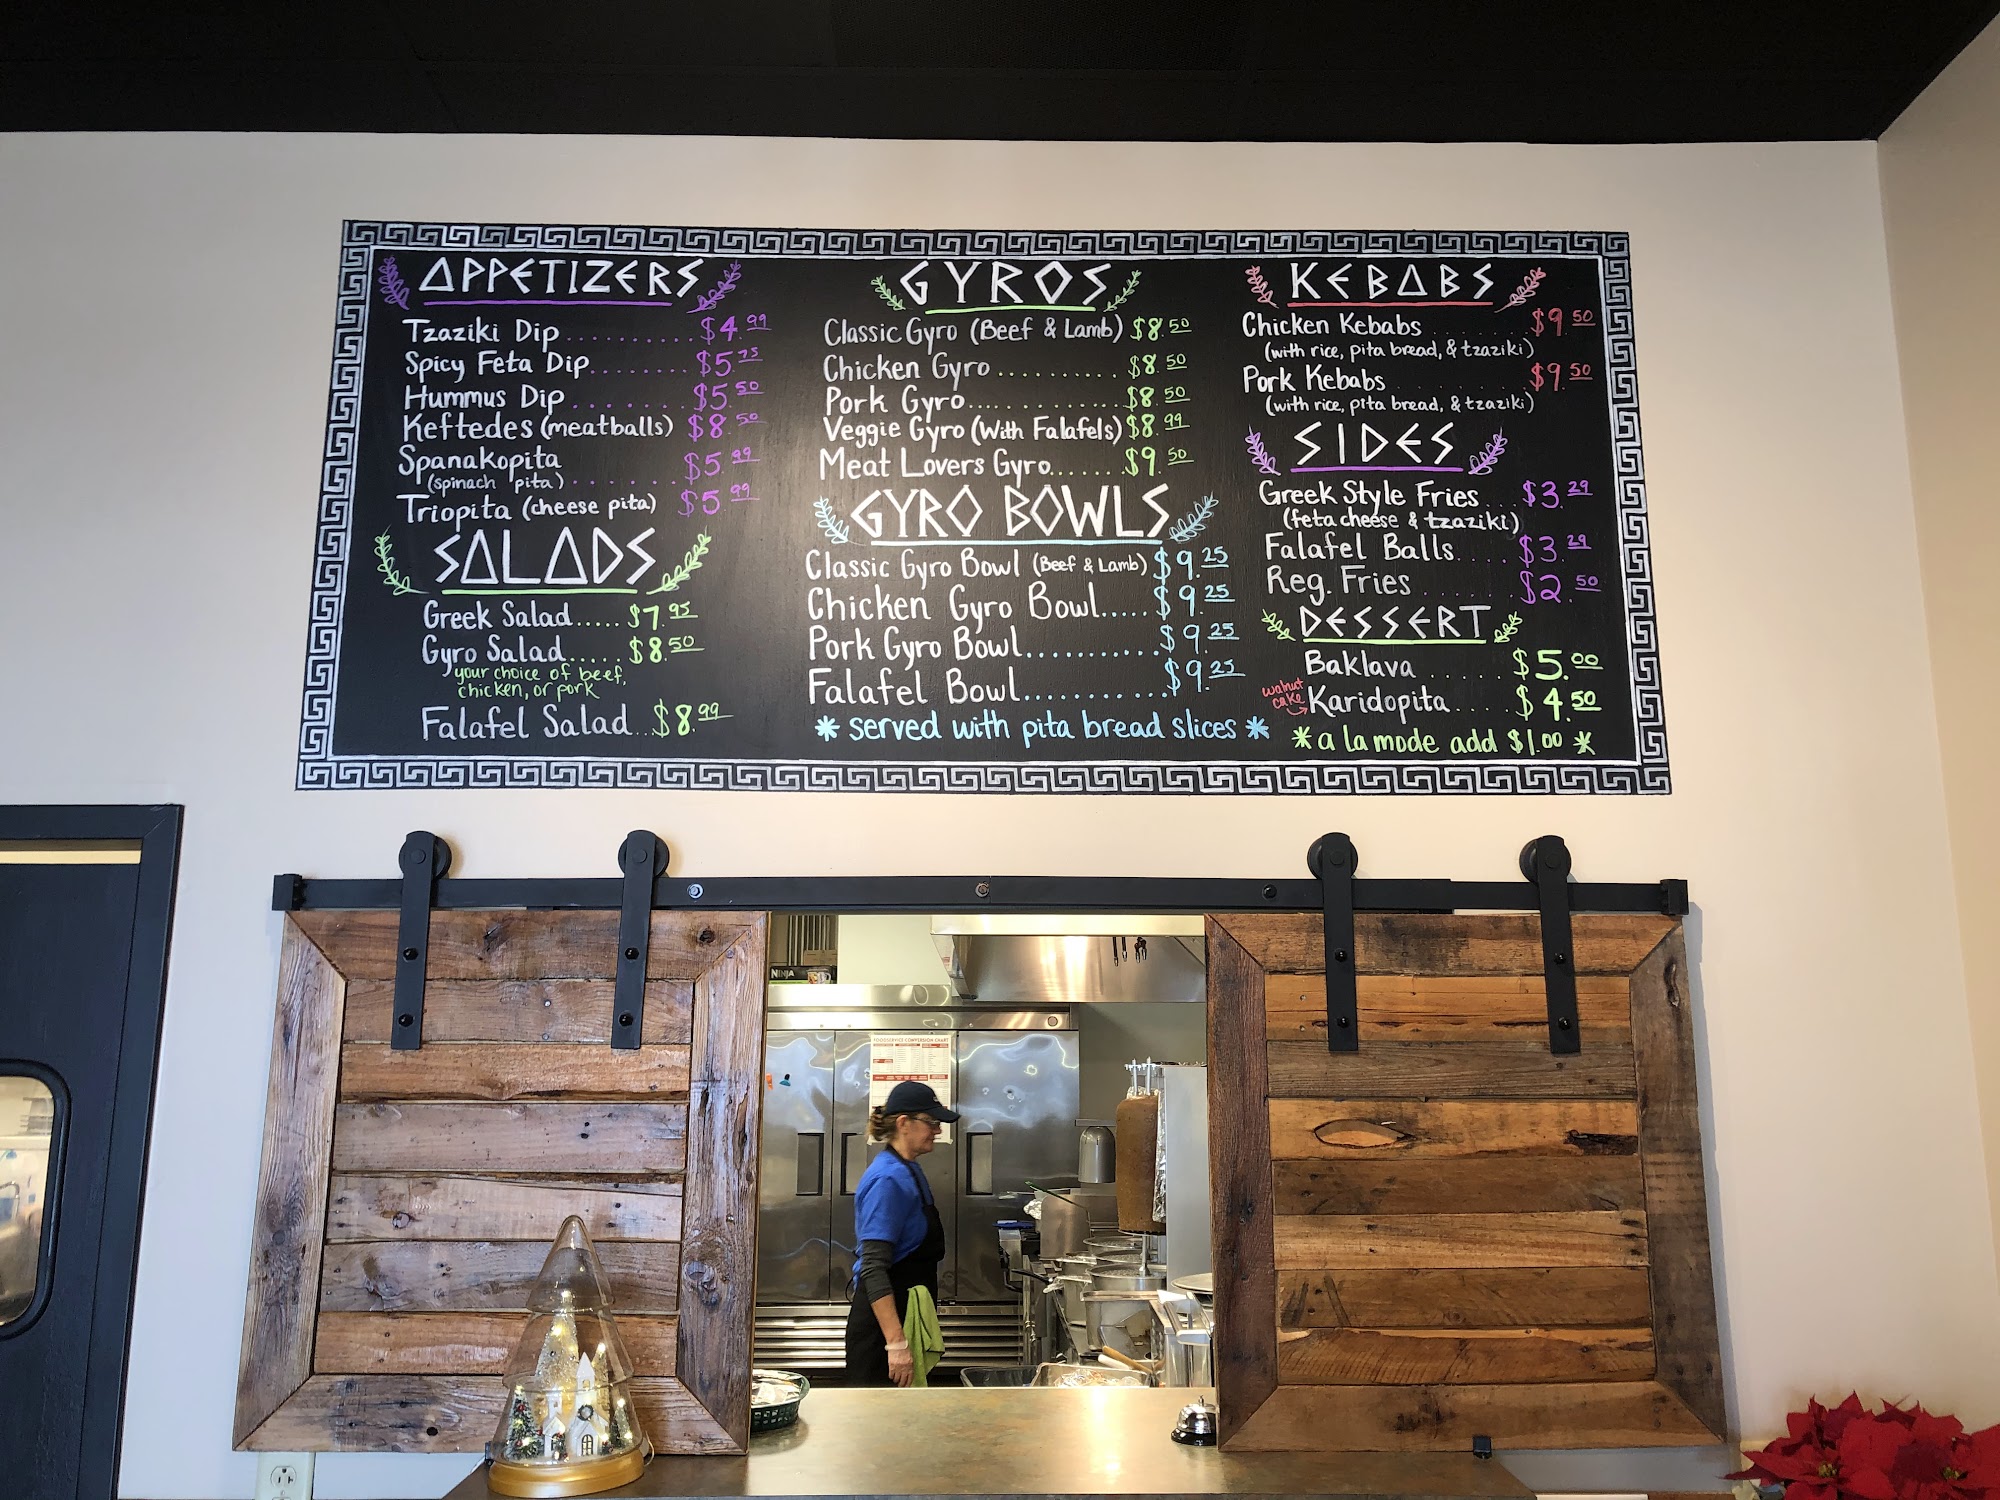 APPETIZERS
Tzaziki Dip.......... $4.99
Spicy Feta Dip........ $5.75
Hummus Dip........ $5.50
Keftedes (meatballs) $8.50
Spanakopita
(spinach pita)....... $5.99
Triopita (cheese pita) $5.99
SALADS
Greek Salad..... $7.95
Gyro Salad..... $8.50
your choice of beef,
chicken, or pork
Falafel Salad.. $8.99
GYROS
Classic Gyro (Beef & Lamb) $8.50
Chicken Gyro.......... $8.50
Pork Gyro.............. $8.50
Veggie Gyro (With Falafels) $8.99
Meat Lovers Gyro...... $9.50
GYRO BOWLS
Classic Gyro Bowl (Beef & Lamb) $9.25
Chicken Gyro Bowl..... $9.25
Pork Gyro Bowl.......... $9.25
Falafel Bowl........... $9.25
* served with pita bread slices *
KEBABS
Chicken Kebabs ........ $9.50
(with rice, pita bread, & tzaziki)
Pork Kebabs ........ $9.50
(with rice, pita bread, & tzaziki)
SIDES
Greek Style Fries... $3.29
(feta cheese & tzaziki)
Falafel Balls..... $3.29
Reg. Fries ....... $2.50
DESSERT
Baklava ...... $5.00
walnut
cake
Karidopita.... $4.50
* a la mode add $1.00 *
NINJA
FOODSERVICE CONVERSION CHART